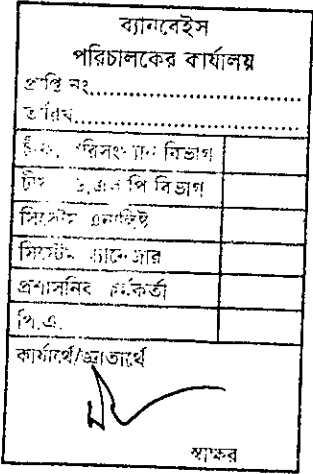 ব্যানবেইস
পরিচালকের কার্যালয়
প্রাপ্তি নং..............................
তারিখ..............................
চীফ, পরিসংখ্যান বিভাগ
চীফ, ডি,এল,পি বিভাগ
সিস্টেম এনালিষ্ট
সিস্টেম ম্যানেজার
প্রশাসনিক কর্মকর্তা
পি.এ.
কার্যার্থে/জ্ঞাতার্থে
স্বাক্ষর